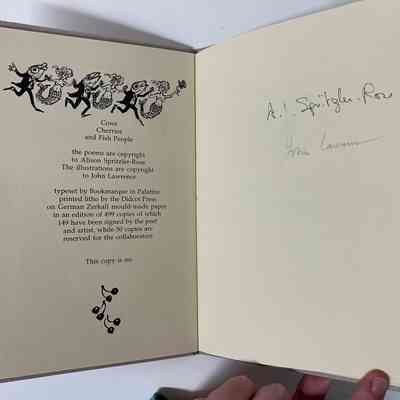 Cows
Cherries
and Fish People
the poems are copyright
to Alison Spritzler-Rose
The illustrations are copyright
to John Lawrence
typeset by Bookmarque in Palatino
printed litho by the Didcot Press
on German Zerkall mould-made paper
in an edition of 499 copies of which
149 have been signed by the poet
and artist, while 50 copies are
reserved for the collaborators
This copy is no
A.J. Spritzler-Rose
John Lawrence